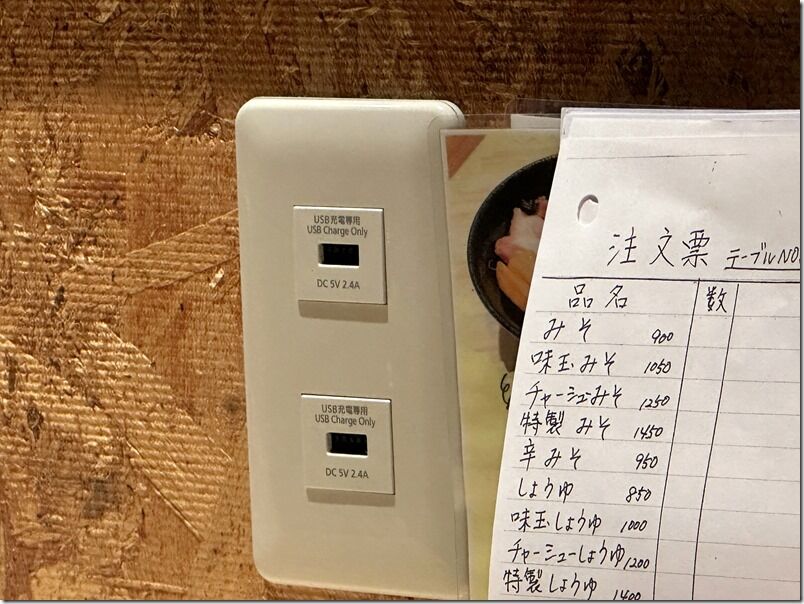 USB充電専用
USB Charge Only
DC 5V 2.4A
USB充電専用
USB Charge Only
DC 5V 2.4A
注文票 テーブルNO.
品名 数
みそ 900
味玉みそ 1050
チャーシューみそ 1250
特製みそ 1450
辛みそ 950
しょうゆ 850
味玉しょうゆ 1000
チャーシューしょうゆ 1200
特製しょうゆ 1400